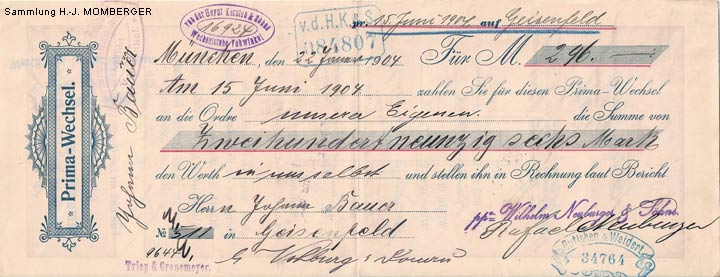 Sammlung H.-J. MOMBERGER
von der Heydt Kersten & Söhne
16924
Wechselstube Vohwinkel
v.d.H.K.&S.
084807
pr. 15 Juni 1904 auf Geisenfeld
München, den 22 1904. Für M. 296.—
Am 15 Juni 1904 zahlen Sie für diesen Prima-Wechsel
an die Ordre unserer Eigenen die Summe von
Zweihundertneunzig sechs Mark
den Werth in uns selbst und stellen ihn in Rechnung laut Bericht.
Herrn Johann Bauer
№ 511 in Geisenfeld
9644
b/ Vohburg a/Donau
ppa Wilhelm Neuburger & Söhne
Rafael Neuburger
34764
Triep & Gronemeyer.
Prima-Wechsel.
Johann Bauer